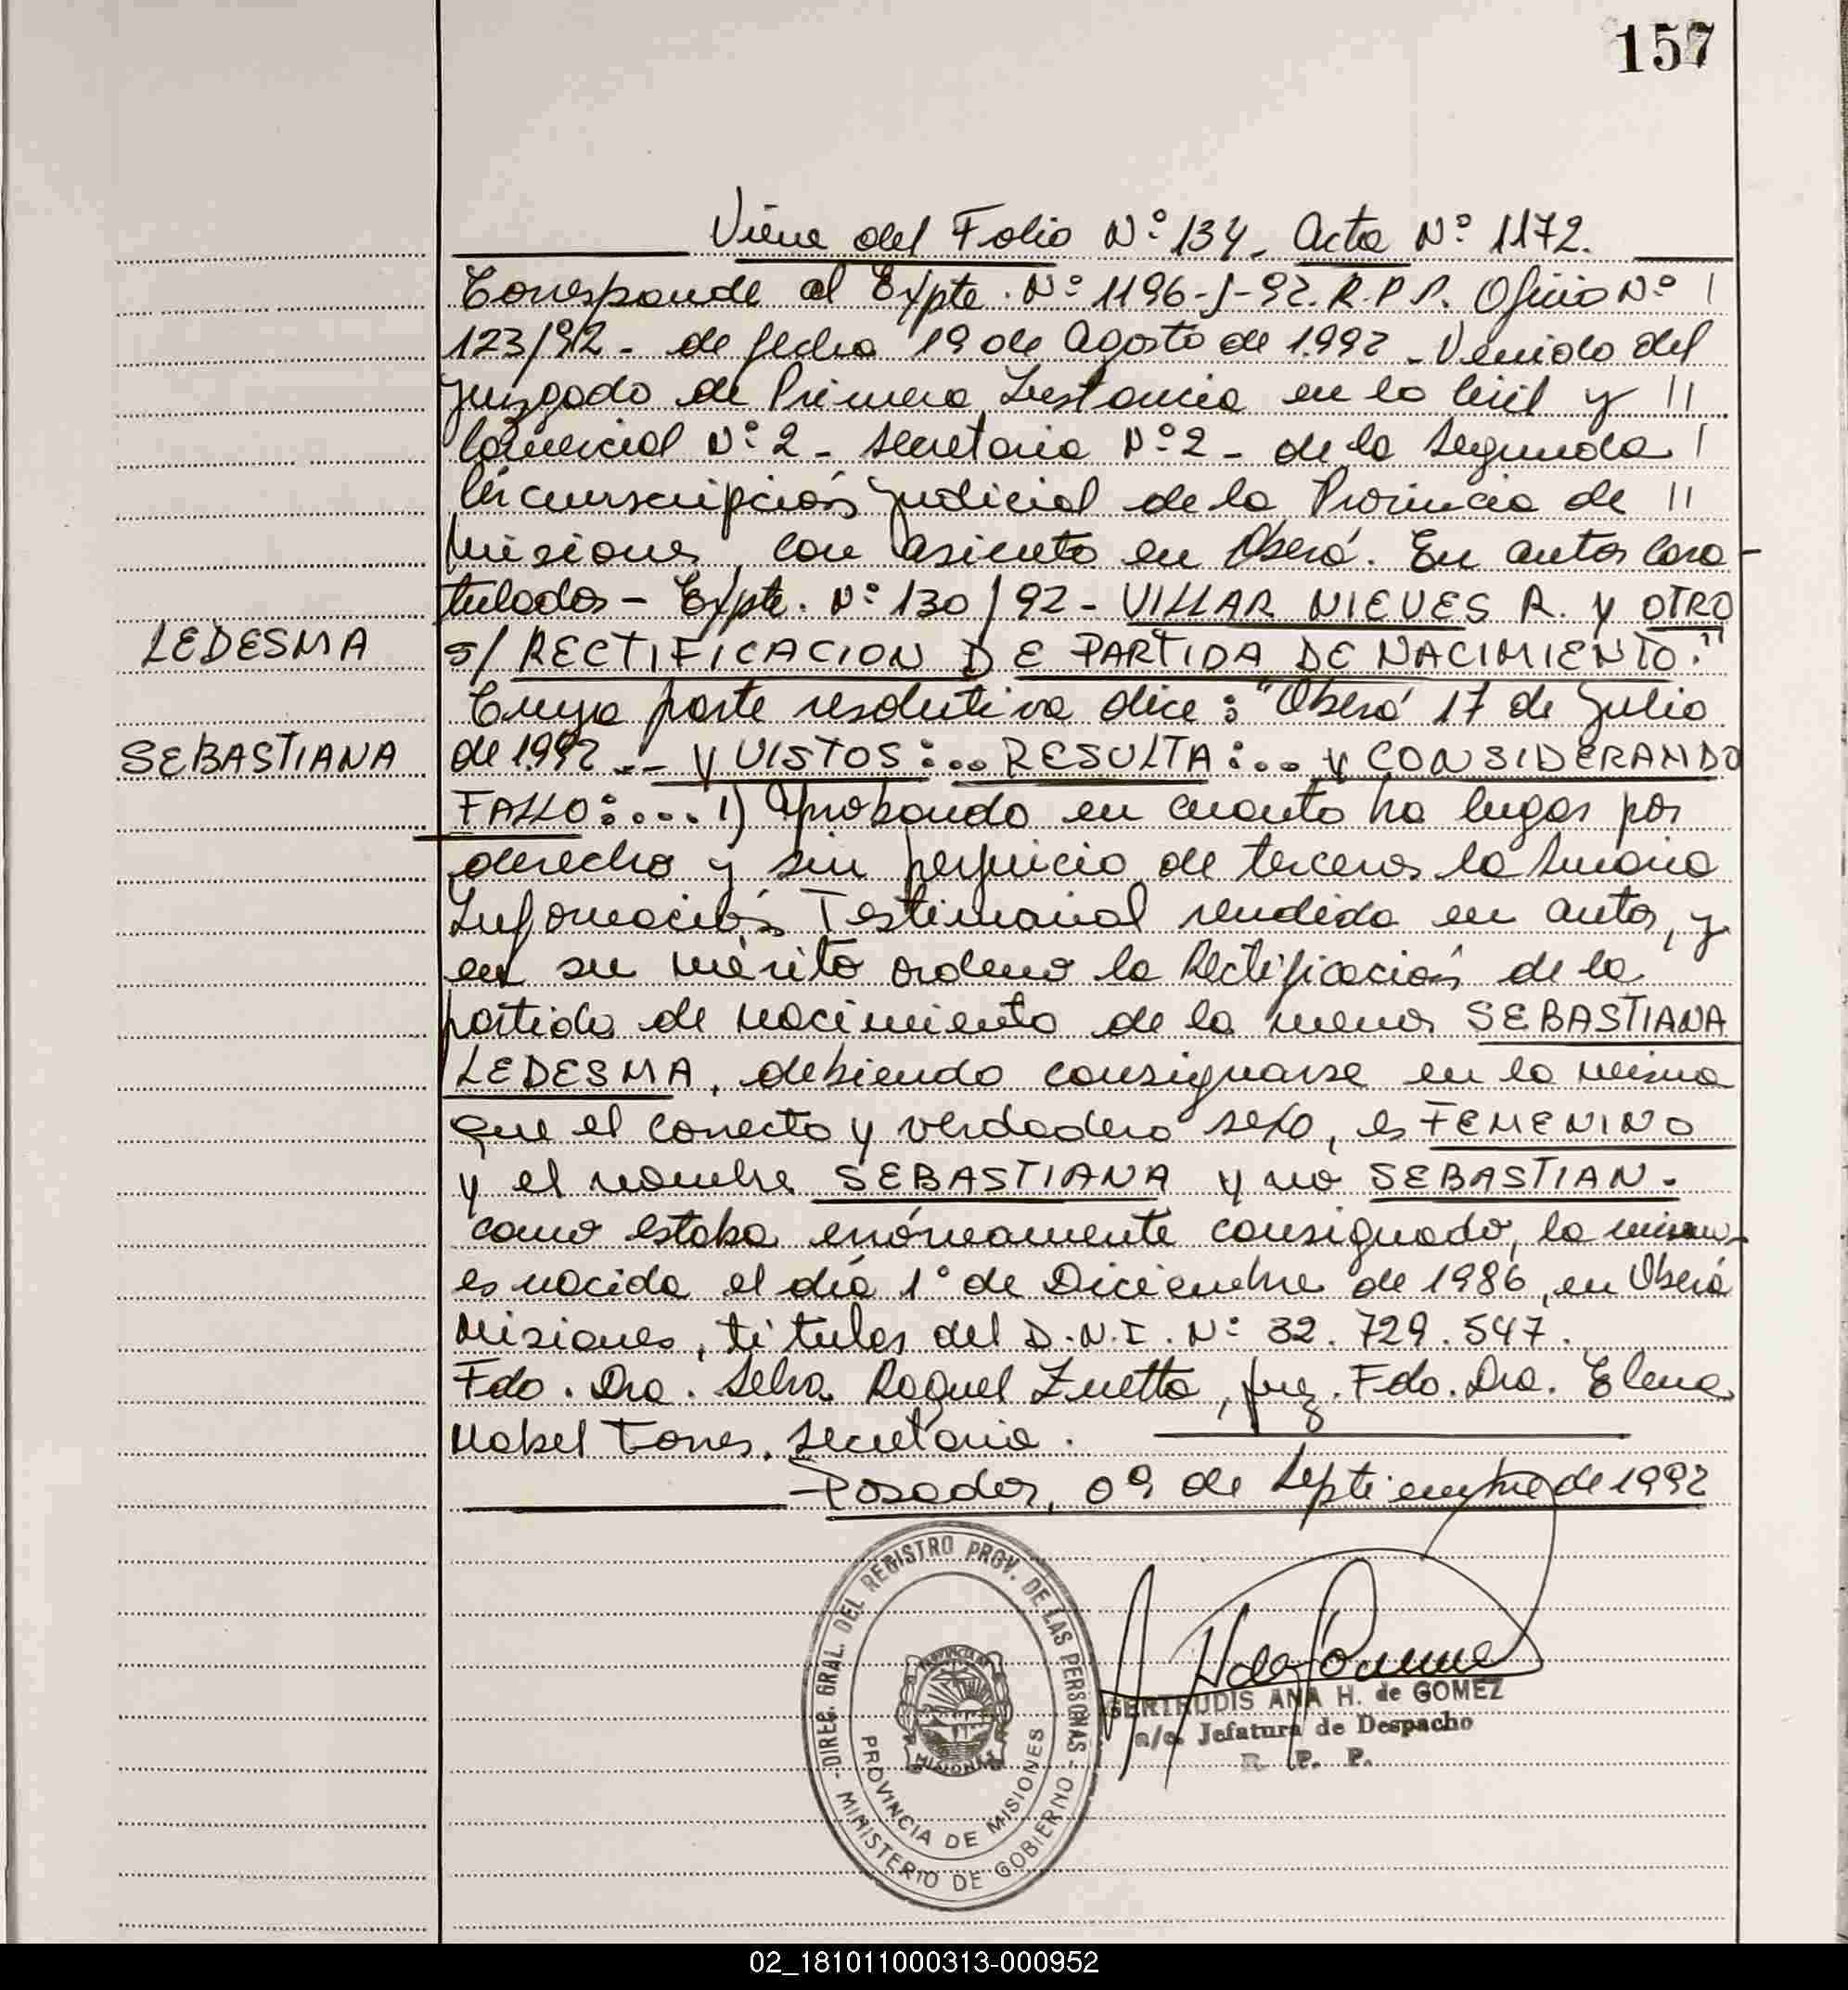 157
Viene del Folio Nº 134. Acta Nº 1172.
Corresponde al Expte. Nº 1196-J-92. R.P.P. Oficio Nº /
123/92 - de fecha 19 de Agosto de 1992 - Venido del
Juzgado de Primera Instancia en lo Civil y //
Comercial Nº 2 - Secretaria Nº 2 - de la Segunda /
Circunscripción Judicial de la Provincia de //
Misiones, con asiento en Oberá. En autos cara-
tulados - Expte. Nº 130/92 - VILLAR NIEVES R. y OTRO
LEDESMA
s/ RECTIFICACION DE PARTIDA DE NACIMIENTO."
Cuya parte resolutiva dice: "Oberá 17 de Julio
SEBASTIANA
de 1992 ... Y VISTOS:... RESULTA:... y CONSIDERANDO
FALLO:.... 1) Aprobando en cuanto ha lugar por
derecho y sin perjuicio de terceros la Sumaria
Información Testimonial rendida en autos, y
en su mérito ordeno la Rectificación de la
partida de nacimiento de la menor SEBASTIANA
LEDESMA, debiendo consignarse en la misma
que el correcto y verdadero sexo, es FEMENINO
y el nombre SEBASTIANA y no SEBASTIAN.
como estaba erróneamente consignado, la misma
es nacida el día 1º de Diciembre de 1986, en Oberá
Misiones, titular del D.N.I. Nº 32.729.547.
Fdo. Dra. Selva Raquel Zuetta, Juez. Fdo. Dra. Elena
Mabel Torres. Secretaria.
Posadas, 09 de Septiembre de 1992
DIREC. GRAL. DEL REGISTRO PROV. DE LAS PERSONAS
MINISTERIO DE GOBIERNO
PROVINCIA DE MISIONES
PROVINCIA DE
MISIONES
GERTRUDIS ANA H. de GOMEZ
a/c. Jefatura de Despacho
R. P. P.
02_181011000313-000952